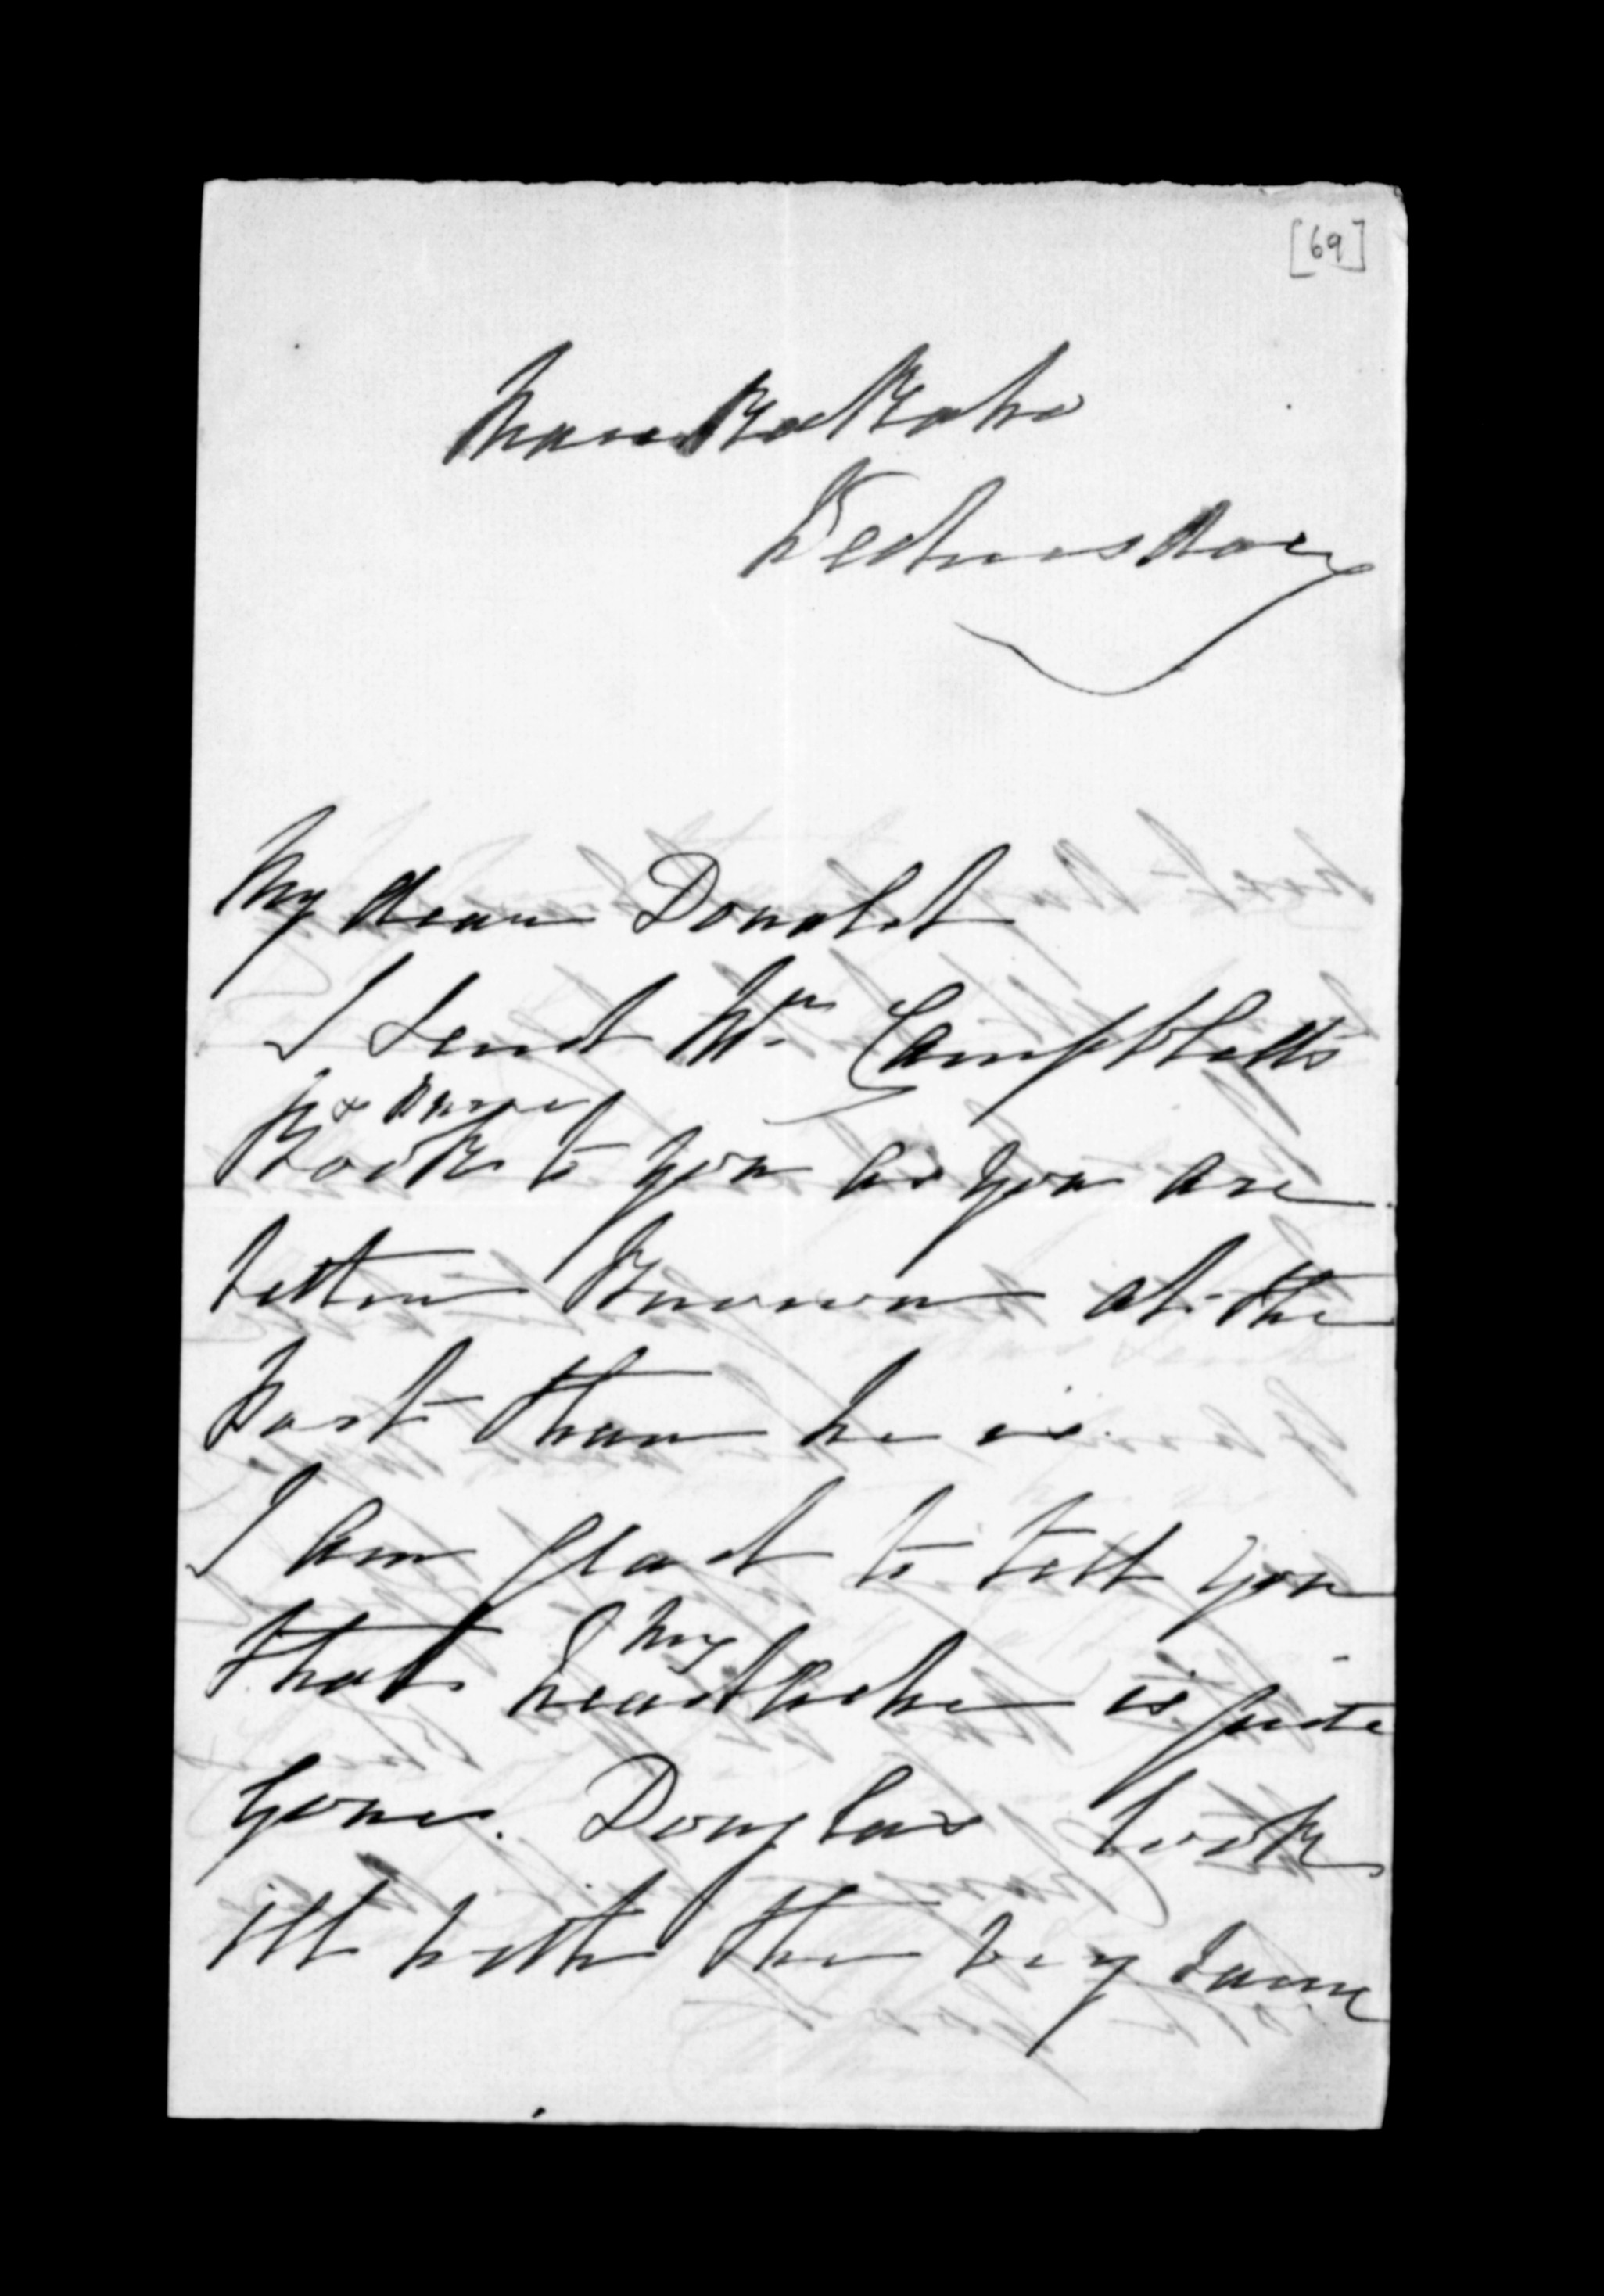 [69]
Maraekakaho
Wednesday
My dear Donald
I send Mr Campbell's
book to you as you are
better known at the
Post than he is.
I am glad to tell you
that my headache is quite
gone. Douglas took
ill with the very same